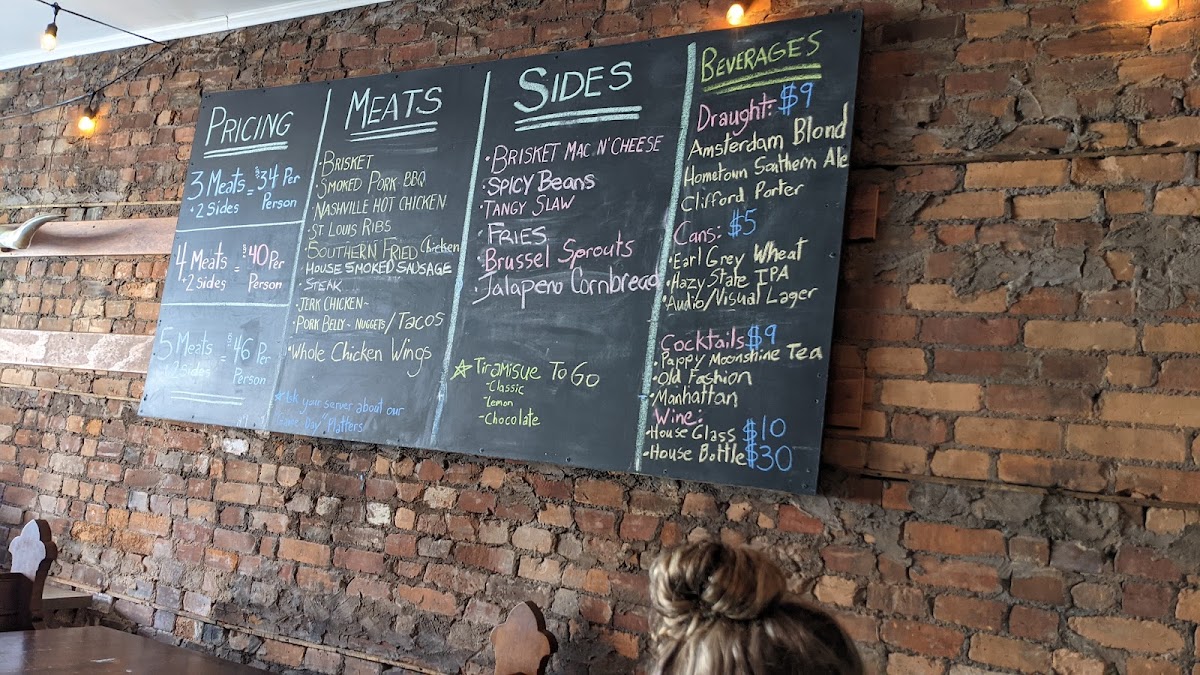 PRICING
3 Meats = $34 Per
+2 Sides Person
4 Meats = $40 Per
+2 Sides Person
5 Meats = $46 Per
+2 Sides Person
MEATS
•BRISKET
•SMOKED PORK BBQ
•NASHVILLE HOT CHICKEN
•ST LOUIS RIBS
•SOUTHERN FRIED Chicken
•HOUSE SMOKED SAUSAGE
•STEAK
•JERK CHICKEN~
•PORK BELLY~ NUGGETS/TACOS
•Whole Chicken Wings
Ask your server about our
"Game Day" Platters
SIDES
•BRISKET MAC N' CHEESE
•SPICY Beans
•TANGY SLAW
•FRIES
•Brussel Sprouts
•Jalapeno Cornbread
☆ Tiramisue To Go
-Classic
-Lemon
-Chocolate
BEVERAGES
Draught: $9
Amsterdam Blond
Hometown Southern Ale
Clifford Porter
Cans: $5
•Earl Grey Wheat
•Hazy State IPA
•Audio/Visual Lager
Cocktails $9
•Pappy Moonshine Tea
•Old Fashion
•Manhattan
Wine:
•House Glass $10
•House Bottle $30